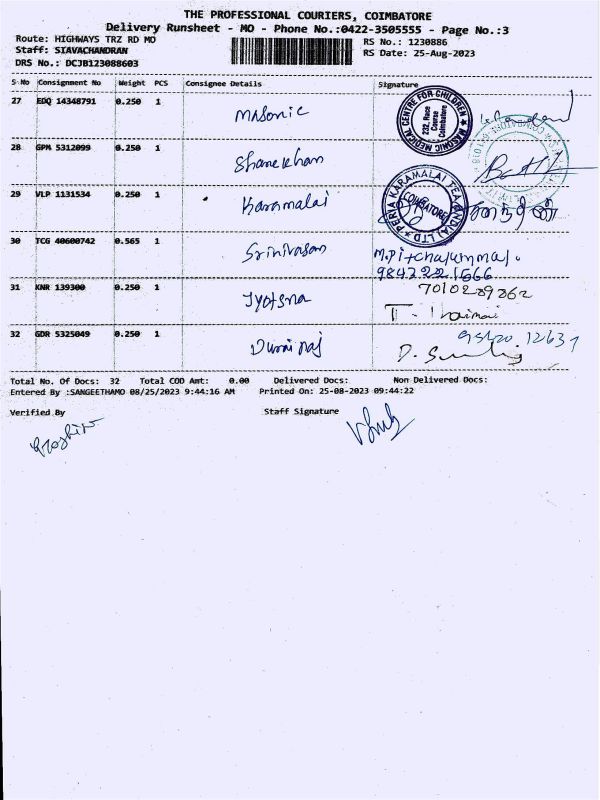 THE PROFESSIONAL COURIERS, COIMBATORE
Delivery Runsheet - MO - Phone No.:0422-3505555 - Page No.:3
Route: HIGHWAYS TRZ RD MO
RS No.: 1230886
Staff: SIAVACHANDRAN
RS Date: 25-Aug-2023
DRS No.: DCJB123088603
S No Consignment No Weight PCS Consignee Details Signature
27 EDQ 14348791 0.250 1 Masonic
MASONIC MEDICAL CENTRE FOR CHILDREN
232, Race
Course
Coimbatore
28 GPM 5312099 0.250 1
29 VLP 1131534 0.250 1 Karamalai
PERIA KARAMALAI TEA (INDIA) LTD
COIMBATORE
30 TCG 40600742 0.565 1 Srinivasan
31 KNR 139300 0.250 1 Jyotsna 7010289862
32 GDR 5325049 0.250 1 Durai raj
Total No. Of Docs: 32 Total COD Amt: 0.00 Delivered Docs: Non Delivered Docs:
Entered By :SANGEETHAMO 08/25/2023 9:44:16 AM Printed On: 25-08-2023 09:44:22
Verified By Staff Signature